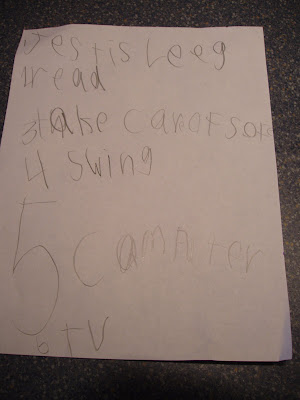 Jestis Leeg
1read
3take car of
4 swing
5 Camputer
6 TV